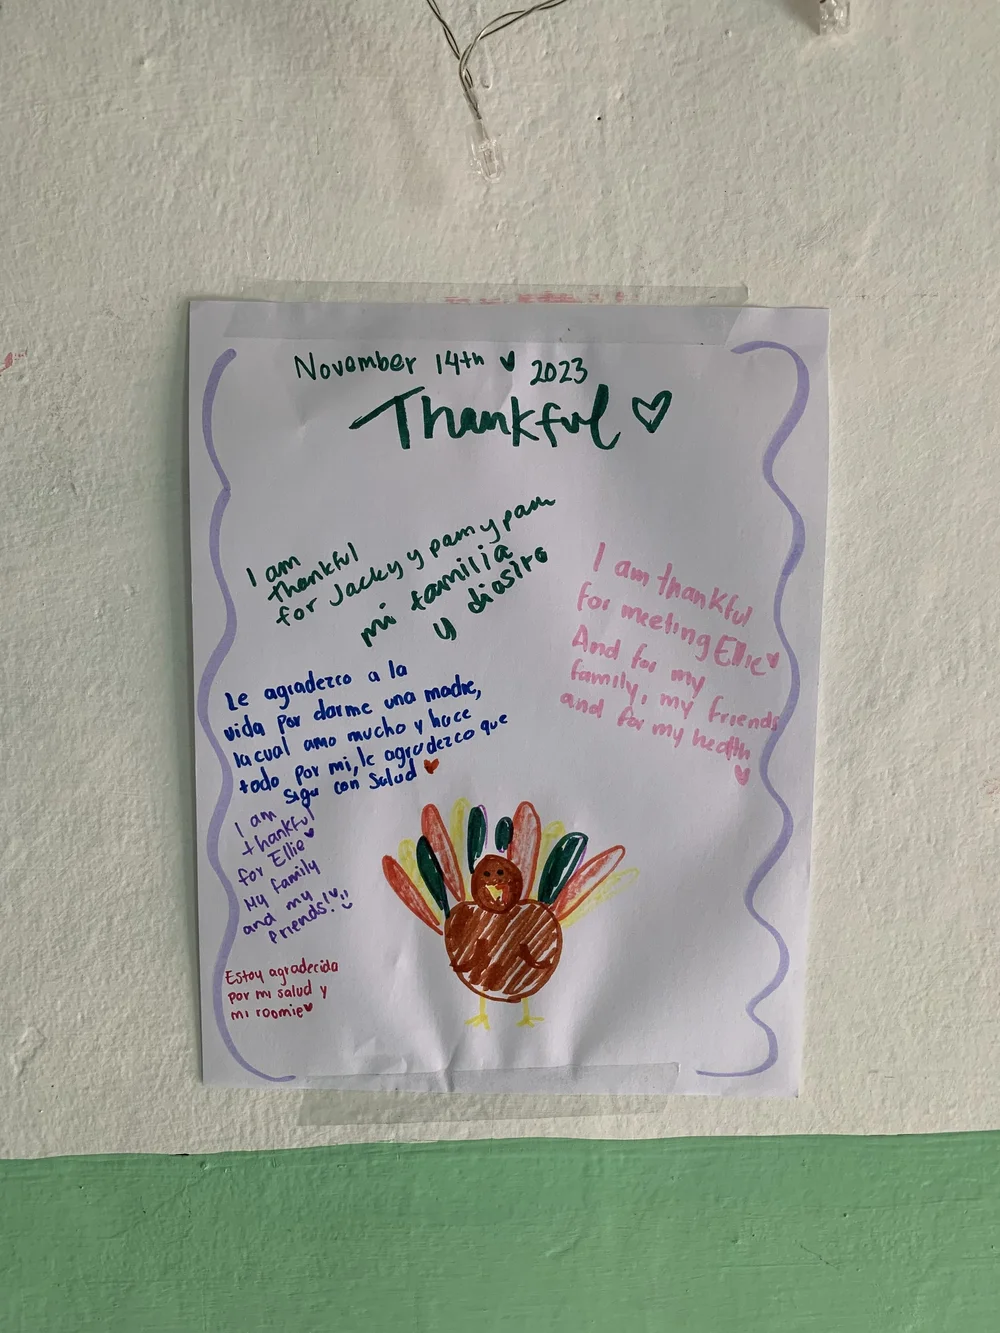 November 14th 2023
Thankful
I am
thankful
for Jacky y pam y pam
mi familia
y diosito
I am thankful
for meeting Ellie
And for my
family, my friends
and for my health
Le agradezco a la
vida por darme una madre,
la cual amo mucho y hace
todo por mi, le agradezco que
siga con salud
I am
thankful
for Ellie
My family
and my
friends!
Estoy agradecida
por mi salud y
mi roomie